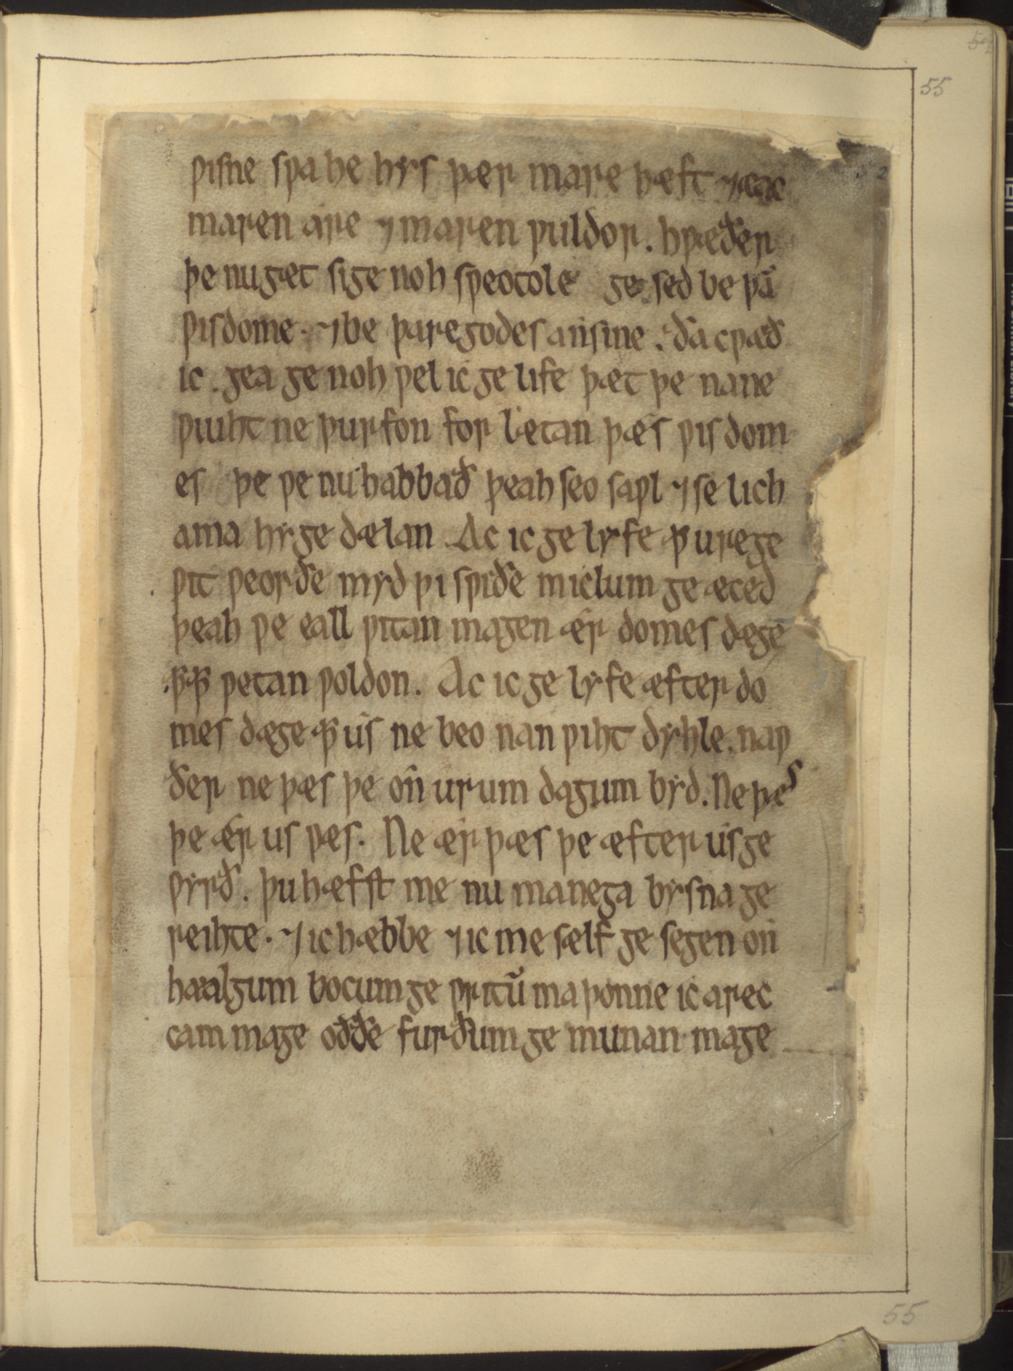 55
ƿisne sƿa he hys þær mare hæft ⁊ eac
maren are ⁊ maren ƿuldor. hƿæðer
þe nu gæt sige noh sƿeotole ge sed be þā
ƿisdome. ⁊ be þare godes ansine. ða cƿæð
ic. gea ge noh ƿel ic ge life þæt ƿe nane
ƿuiht ne þurfon for lætan þæs ƿis dom
es þe ƿe nu habbað þeah seo saƿl ⁊ se lich
ama hy ge dælan. Ac ic ge lyfe ꝥ ure ge
ƿit ƿeorðe myd þi sƿiðe miclum ge æced
þeah ƿe eall ƿitan magen ær domes dæge
ꝥ ꝥ ƿe tan ƿoldon. Ac ic ge lyfe æfter do
mes dæge ꝥ us ne beo nan ƿiht dyhle. naƿ
ðer ne þæs þe on urum dagum byd. Ne þæs
þe ær us ƿes. Ne ær þæs þe æfter us ge
ƿyrð. þu hæfst me nu manega bysna ge
reihte. ⁊ ic hæbbe ⁊ ic me sælf ge segen on
haalgum bocum ge ƿritū ma þonne ic arec
cam mage oððe furðum ge munan mage
55